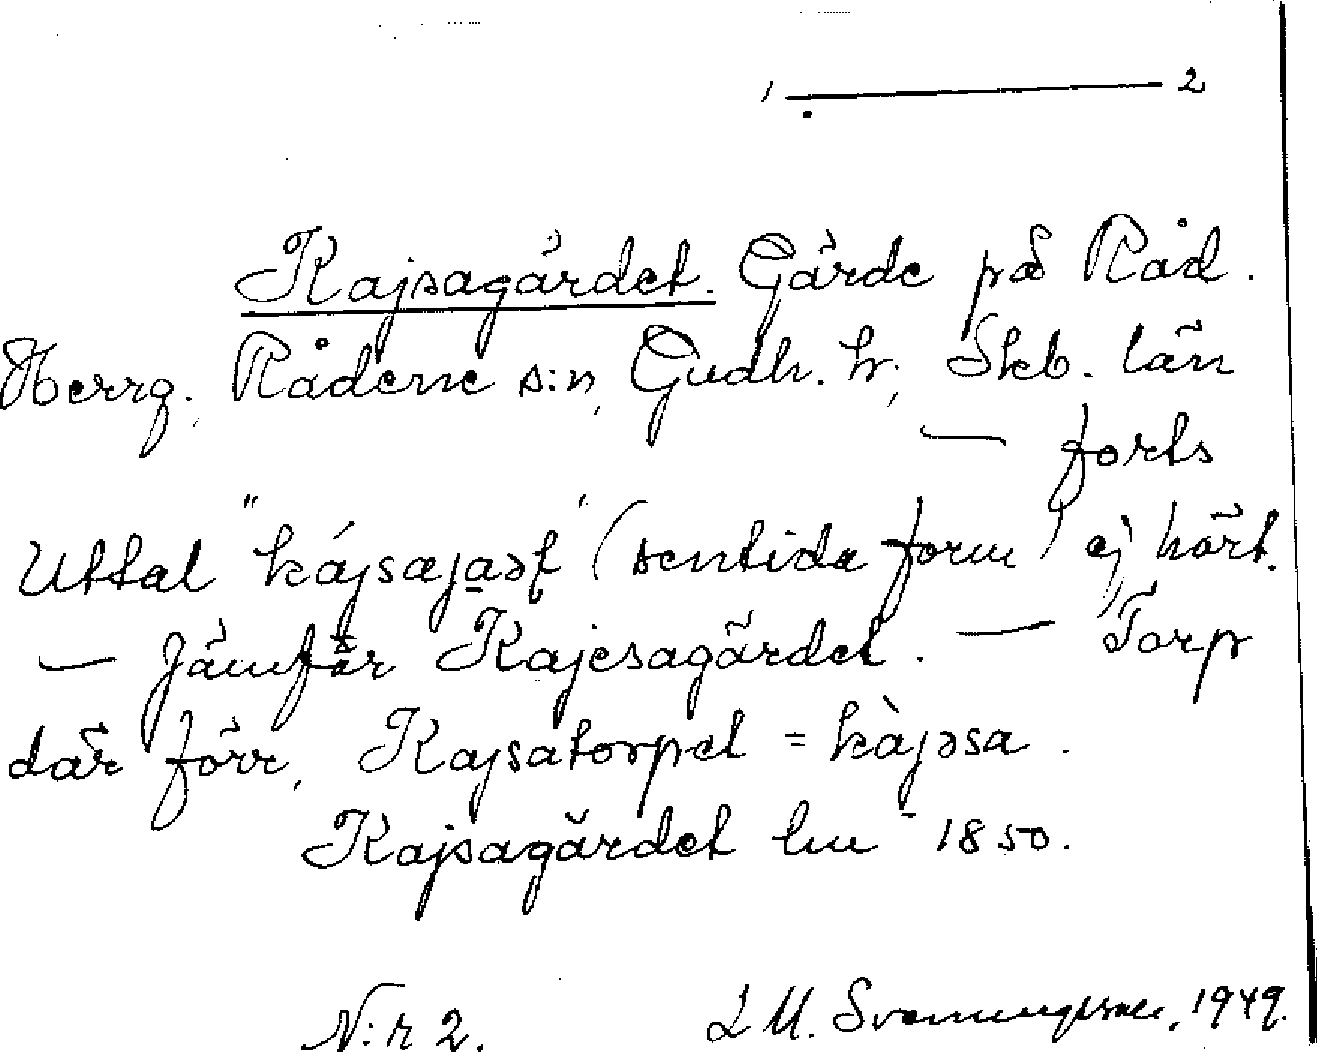 1 — 2
Kajsagärdet. Gärde på Råd.
Herrg. Rådene s:n, Gudh. h., Skb. län
— forts
Uttal "kájsajaət" (sentida form) ej hört.
— Jämför Kajesagärdet. — Torp
där förr, Kajsatorpet = kàjəsa.
Kajsagärdet lm 1850.
N:r 2. L M. Svenungsson, 1949.